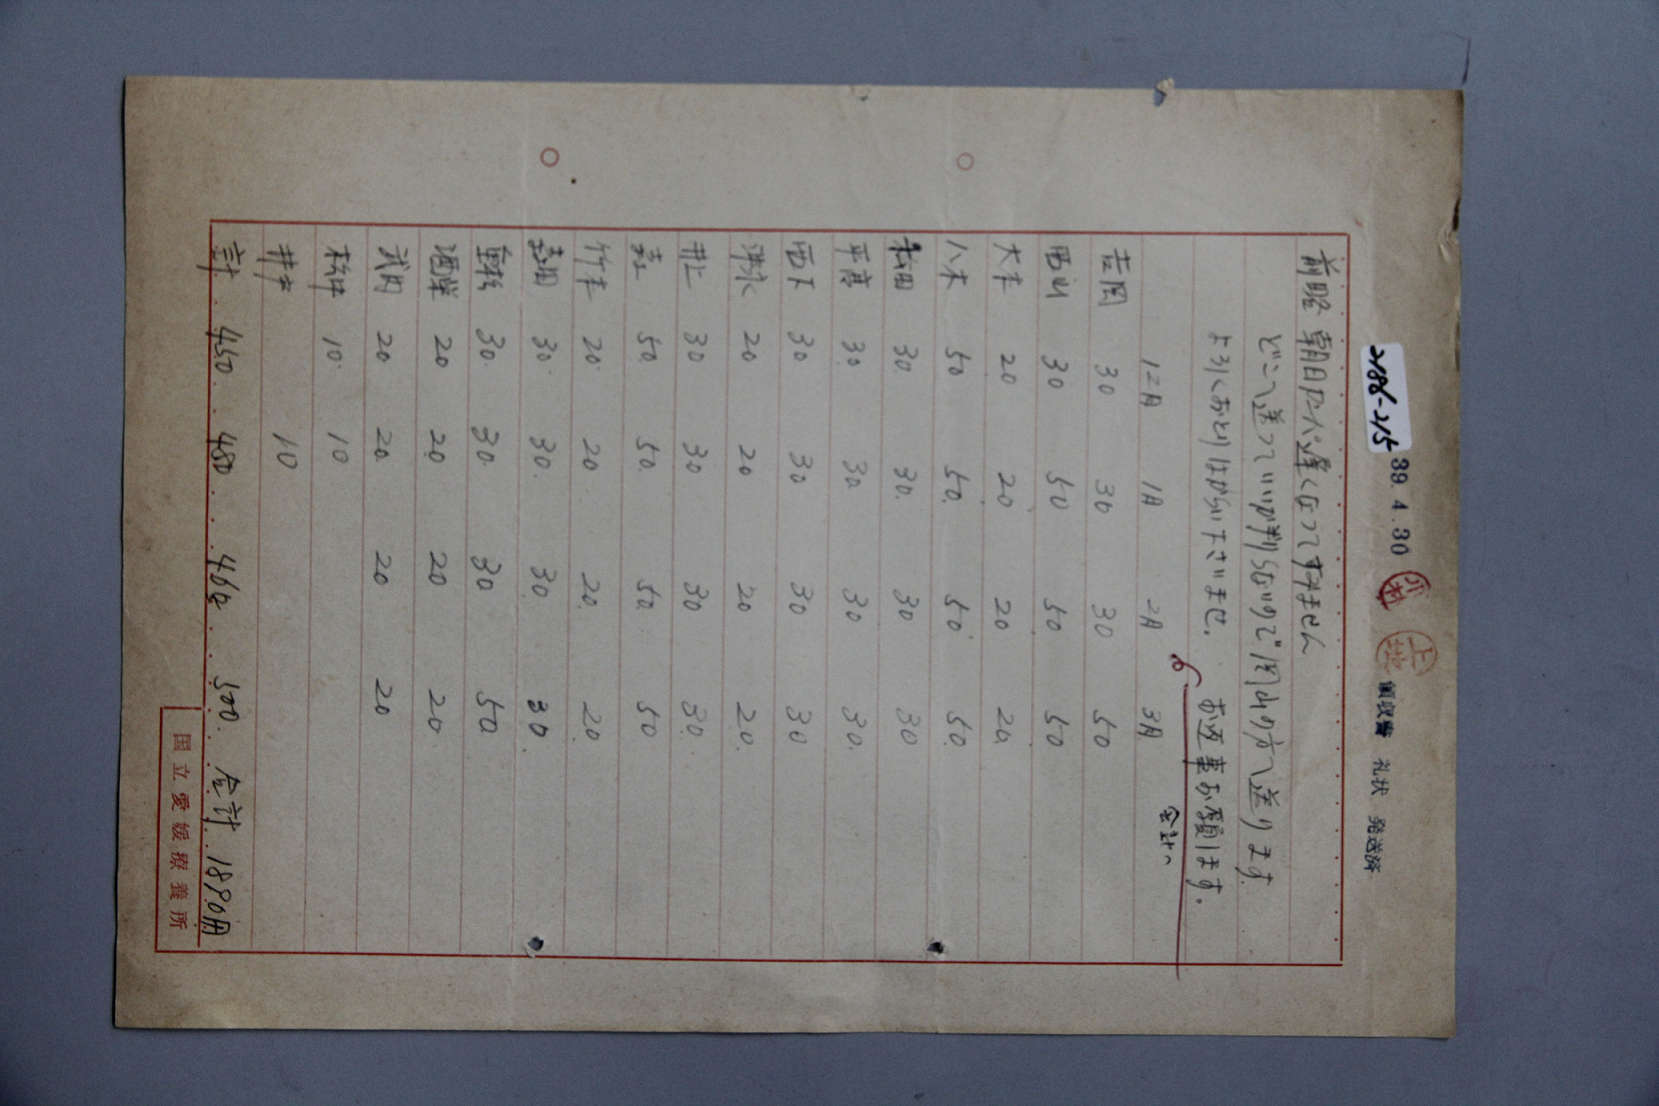 2186-215
39.4.30
領収書 礼状 発送済
前略 朝日カンパ遅くなってすみません
どこへ送っていいか判らないので岡山の方へ送ります
よろしくおとりはからい下さいませ。
お返事お願します。
会計へ
12月 1月 2月 3月
吉岡 30 30 30 50
西山 30 50 50 50
大本 20 20 20 20
八木 50 50 50 50
松田 30 30 30 30
平彦 30 30 30 30
西下 30 30 30 30
清水 20 20 20 20
井上 30 30 30 30
50 50 50 50
竹本 20 20 20 20
30 30 30 30
重松 30 30 30 50
酒学 20 20 20 20
武内 20 20 20 20
松中 10 10
井戸 10
計 450 480 460 500 合計 1890円
国立愛媛療養所